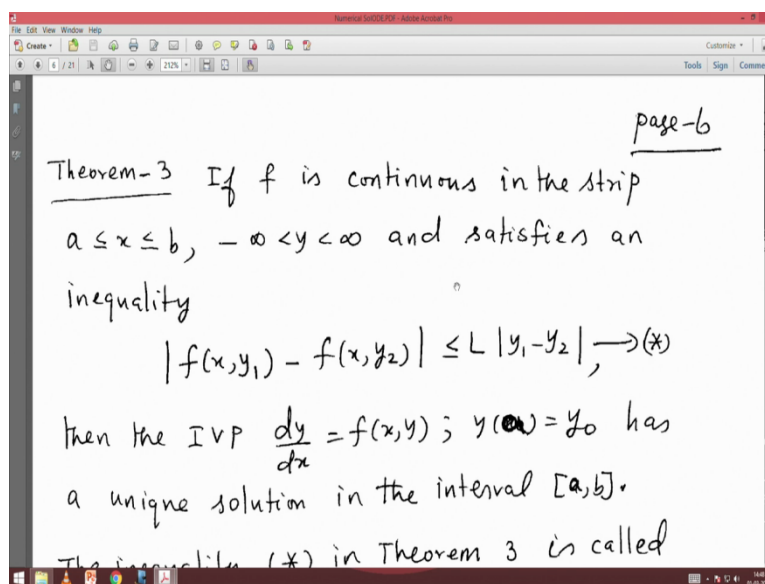 Numerical SolODE.PDF - Adobe Acrobat Pro
File Edit View Window Help
Create Customize
6 / 21 212% Tools Sign Comme
page-6
Theorem-3 If f is continuous in the strip
a ≤ x ≤ b, -∞ < y < ∞ and satisfies an
inequality
|f(x,y₁) - f(x,y₂)| ≤ L |y₁-y₂|, → (*)
then the IVP dy/dx = f(x,y) ; y(a) = y₀ has
a unique solution in the interval [a,b].
The inequality (*) in Theorem 3 is called